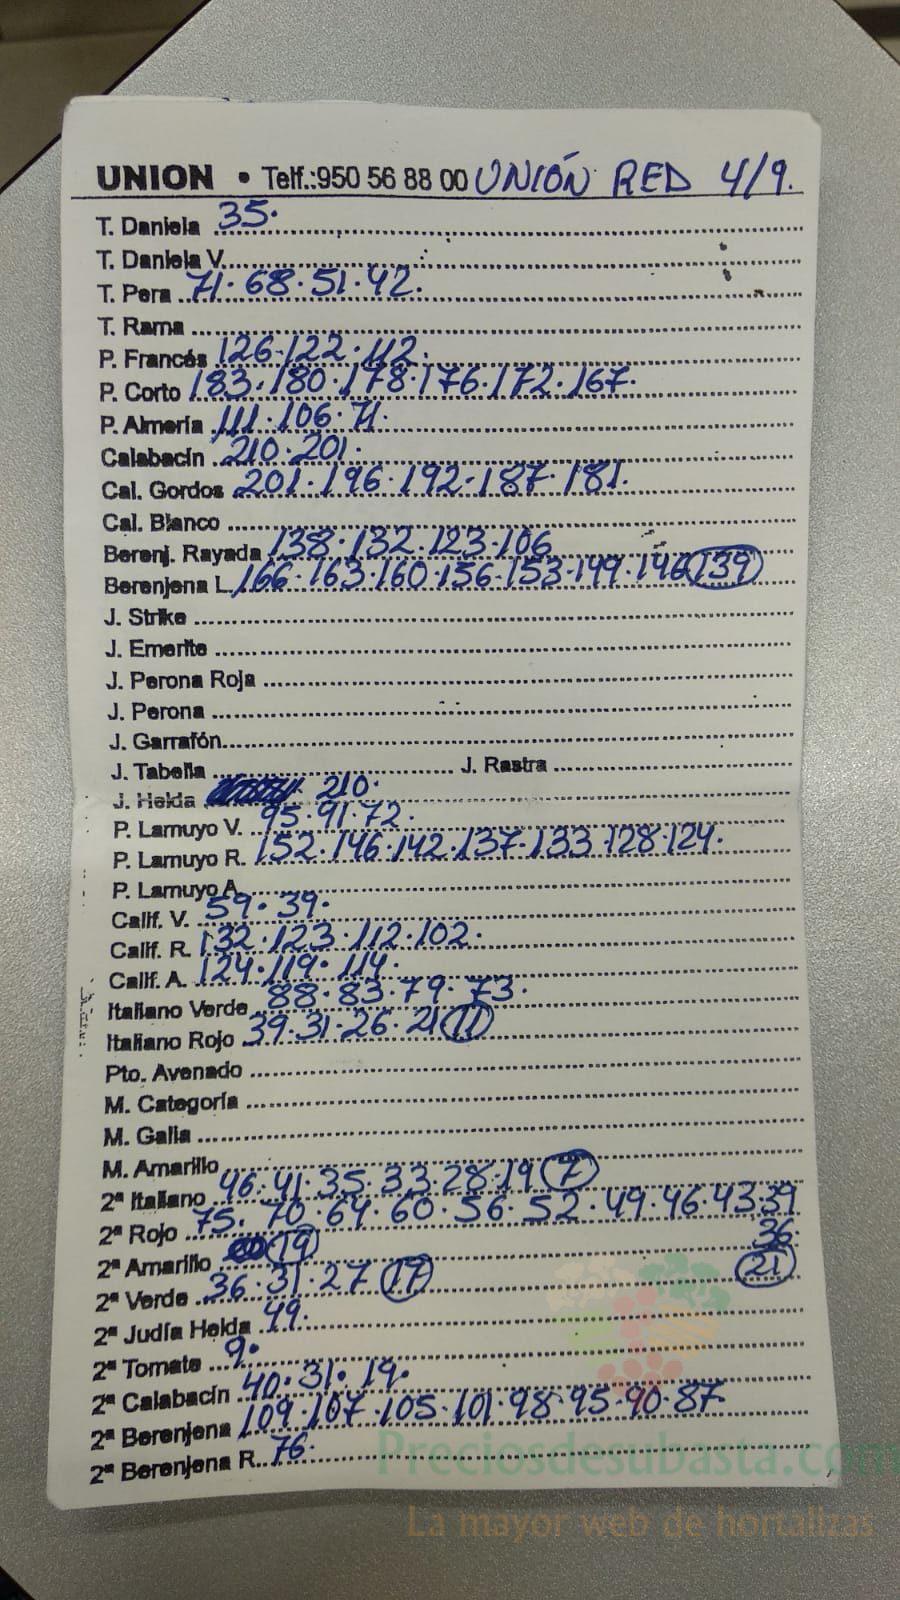 UNION • Telf.:950 56 88 00 UNIÓN RED 4/9.
T. Daniela 35.
T. Daniela V.
T. Pera 71.68.51.42.
T. Rama
P. Francés 126.122.112.
P. Corto 183.180.178.176.172.167.
P. Almería 111.106.71.
Calabacín 210.201.
Cal. Gordos 201.196.192.187.181.
Cal. Blanco
Berenj. Rayada 138.132.123.106
Berenjena L. 166.163.160.156.153.149.146 139
J. Strike
J. Emerite
J. Perona Roja
J. Perona
J. Garrafón
J. Tabella J. Rastra
J. Helda 210.
P. Lamuyo V. 95.91.72.
P. Lamuyo R. 152.146.142.137.133.128.124.
P. Lamuyo A.
Calif. V. 59.39.
Calif. R. 132.123.112.102.
Calif. A. 124.119.114.
Italiano Verde 88.83.79.73.
Italiano Rojo 39.31.26.21 11
Pto. Avenado
M. Categoría
M. Galia
M. Amarillo
2ª Italiano 46.41.35.33.28.19 7
2ª Rojo 75.70.64.60.56.52.49.46.43.39
36
2ª Amarillo 19
21
2ª Verde 36.31.27 17
2ª Judía Helda 49.
2ª Tomate 9.
2ª Calabacín 40.31.19.
2ª Berenjena 109.107.105.101.98.95.90.87.
2ª Berenjena R. 76.
Preciosdesubasta.com
La mayor web de hortalizas